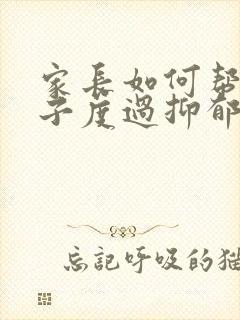 家長如何幫
子度過抑郁
忘記呼吸的猫